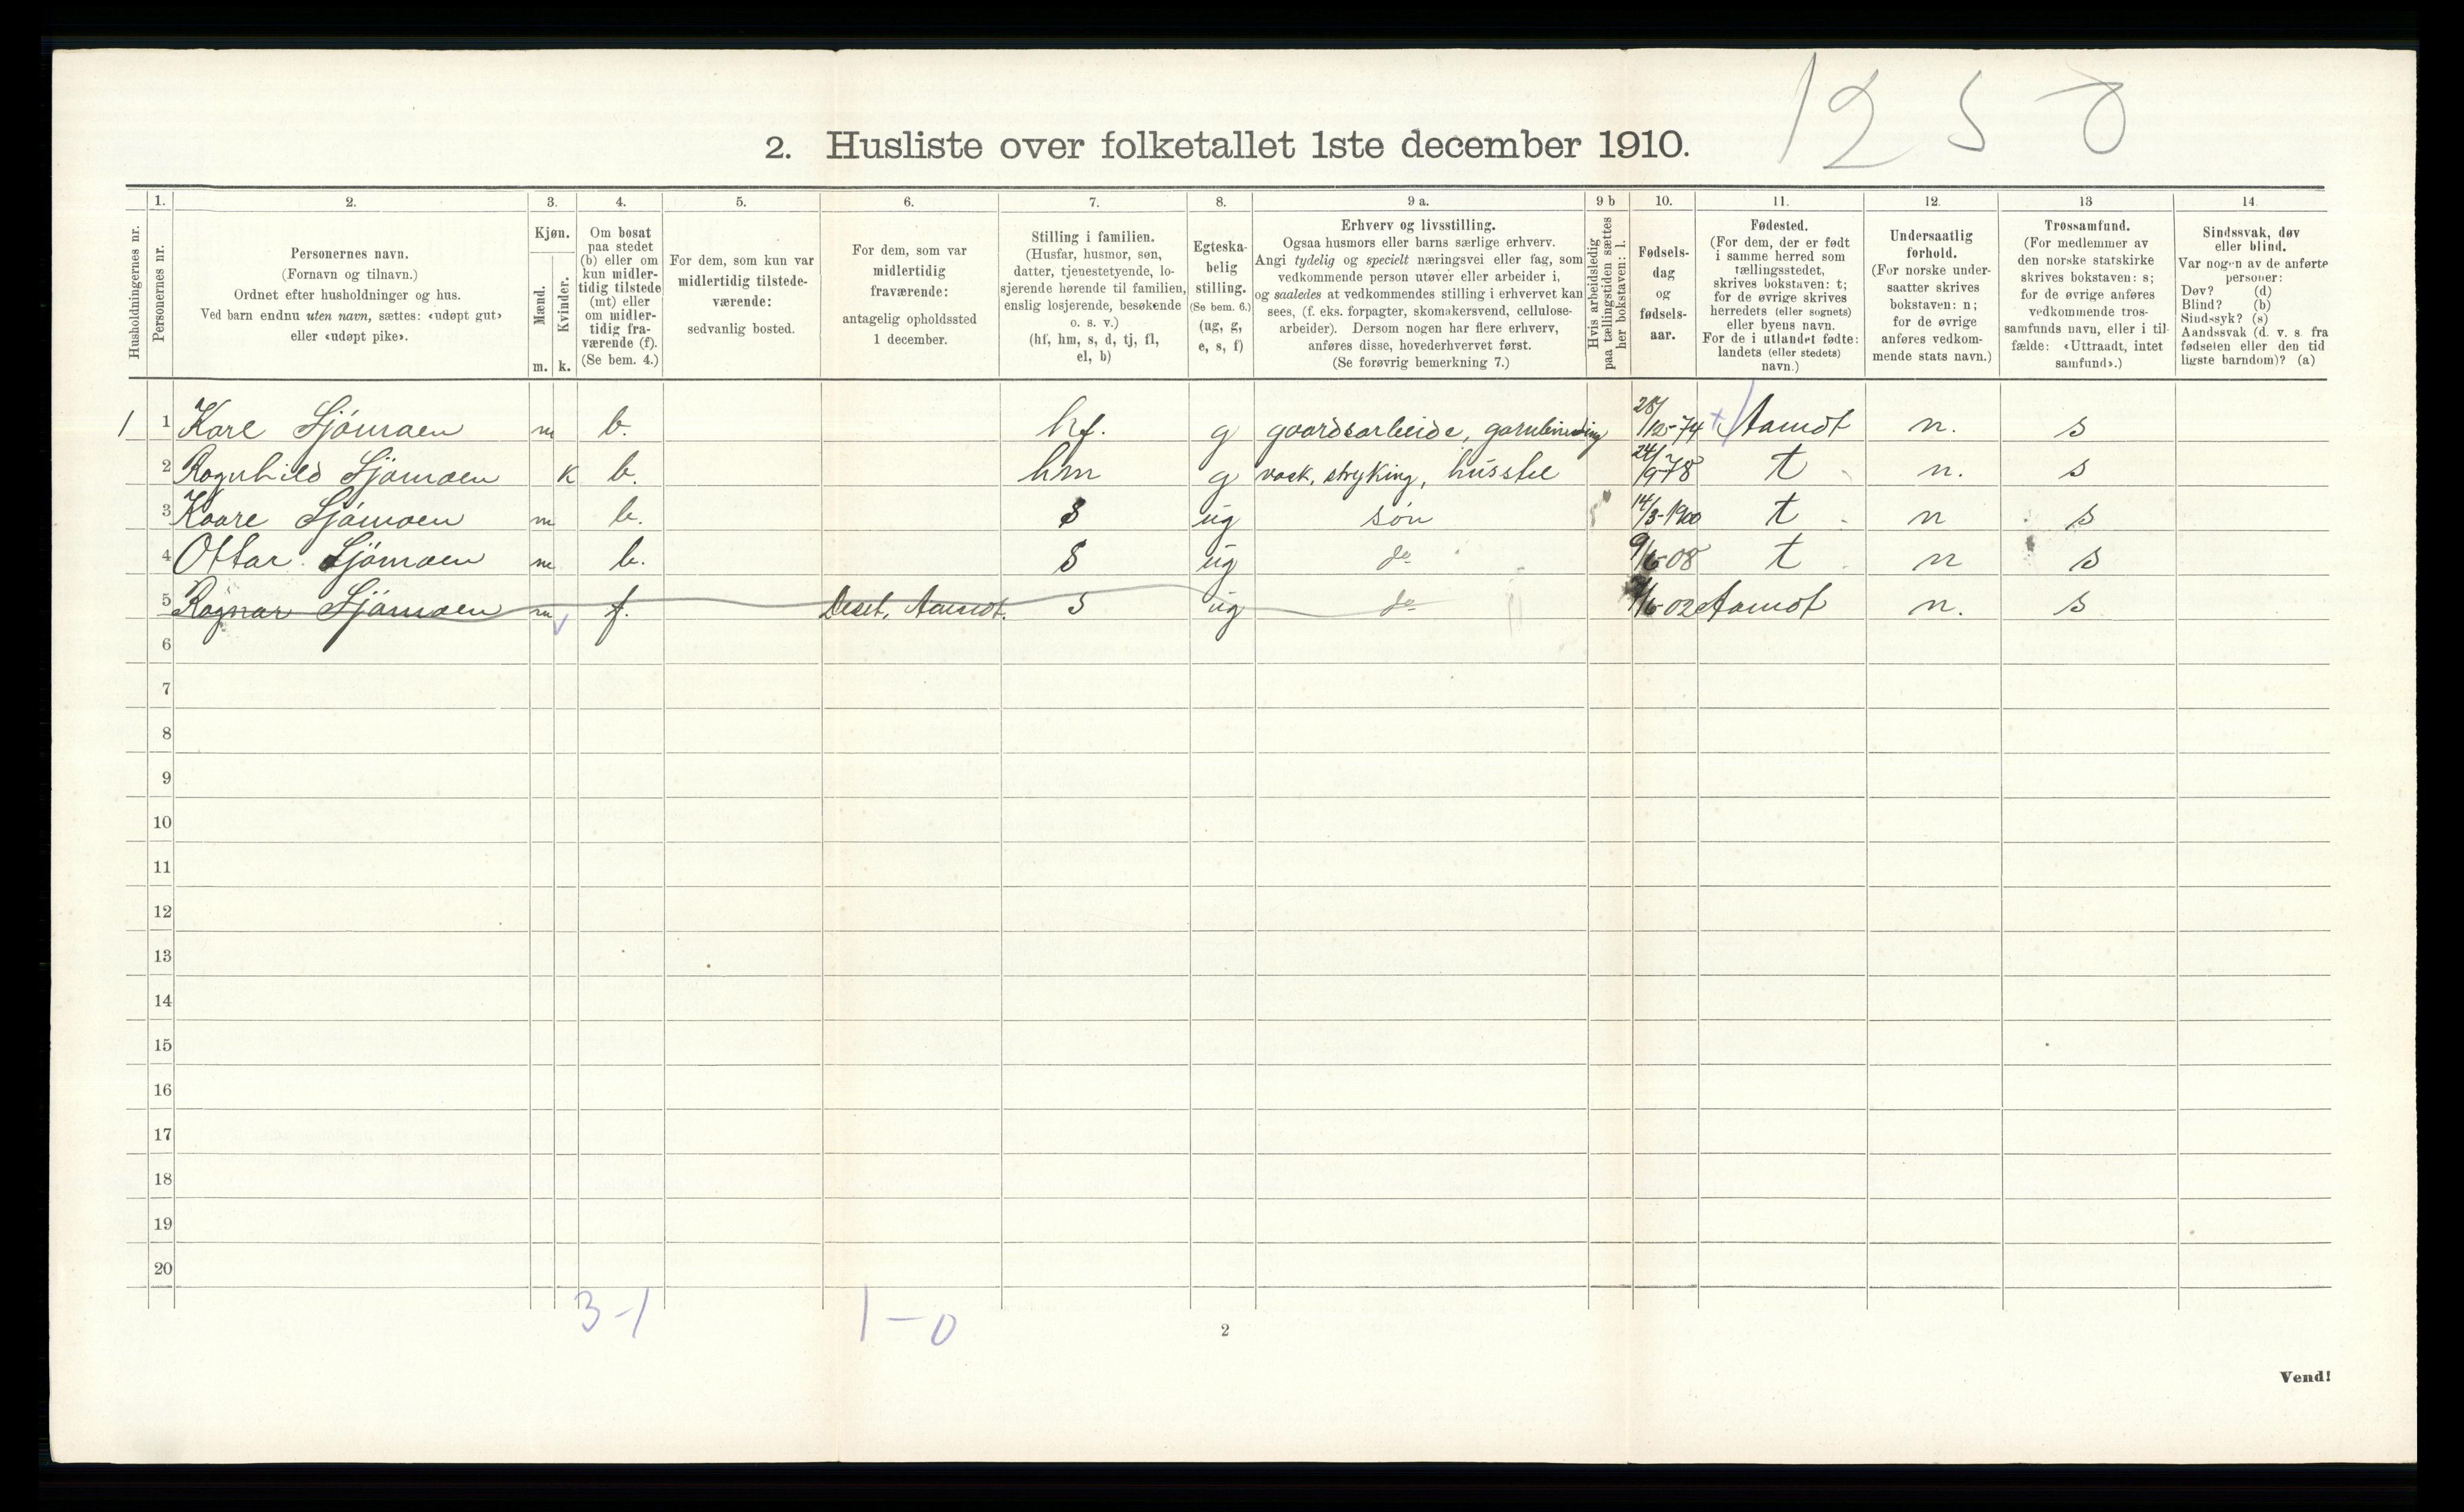 1250
2. Husliste over folketallet 1ste december 1910.
Husholdningernes nr.
1.
Personernes nr.
2.
Personernes navn.
(Fornavn og tilnavn.)
Ordnet efter husholdninger og hus.
Ved barn endnu uten navn, sættes: «udøpt gut»
eller «udøpt pike».
3.
Kjøn.
Mænd.
Kvinder.
m. k.
4.
Om bosat
paa stedet
(b) eller om
kun midler-
tidig tilstede
(mt) eller
om midler-
tidig fra-
værende (f).
(Se bem. 4.)
5.
For dem, som kun var
midlertidig tilstede-
værende:
sedvanlig bosted.
6.
For dem, som var
midlertidig
fraværende:
antagelig opholdssted
1 december.
7.
Stilling i familien.
(Husfar, husmor, søn,
datter, tjenestetyende, lo-
sjerende hørende til familien,
enslig losjerende, besøkende
o. s. v.)
(hf, hm, s, d, tj, fl,
el, b)
8.
Egteska-
belig
stilling.
(Se bem. 6.)
(ug, g,
e, s, f)
9 a.
Erhverv og livsstilling.
Ogsaa husmors eller barns særlige erhverv.
Angi tydelig og specielt næringsvei eller fag, som
vedkommende person utøver eller arbeider i,
og saaledes at vedkommendes stilling i erhvervet kan
sees, (f. eks. forpagter, skomakersvend, cellulose-
arbeider). Dersom nogen har flere erhverv,
anføres disse, hovederhvervet først.
(Se forøvrig bemerkning 7.)
9 b
Hvis arbeidsledig
paa tællingstiden sættes
her bokstaven: l.
10.
Fødsels-
dag
og
fødsels-
aar.
11.
Fødested.
(For dem, der er født
i samme herred som
tællingsstedet,
skrives bokstaven: t;
for de øvrige skrives
herredets (eller sognets)
eller byens navn.
For de i utlandet fødte:
landets (eller stedets)
navn.)
12.
Undersaatlig
forhold.
(For norske under-
saatter skrives
bokstaven: n;
for de øvrige
anføres vedkom-
mende stats navn.)
13
Trossamfund.
(For medlemmer av
den norske statskirke
skrives bokstaven: s;
for de øvrige anføres
vedkommende tros-
samfunds navn, eller i til-
fælde: «Uttraadt, intet
samfund».)
14
Sindssvak, døv
eller blind.
Var nogen av de anførte
personer:
Døv? (d)
Blind? (b)
Sindssyk? (s)
Aandssvak (d. v. s. fra
fødselen eller den tid
ligste barndom)? (a)
1 1 Kare Sjömoen m b. hf. g gaardsarbeide, garnbinding 28/12-74 Aamot n. s
2 Ragnhild Sjömoen k b. hm g vask, stryking, husstel 24/9-78 t n. s
3 Kaare Sjömoen m b. s ug søn 14/3-1900 t n s
4 Ottar Sjömoen m b. s ug do 9/6-08 t n s
5 Ragnar Sjömoen m f. Deset, Aamot. s ug do /6-02 Aamot n. s
6
7
8
9
10
11
12
13
14
15
16
17
18
19
20
3-1 1-0
2
Vend!